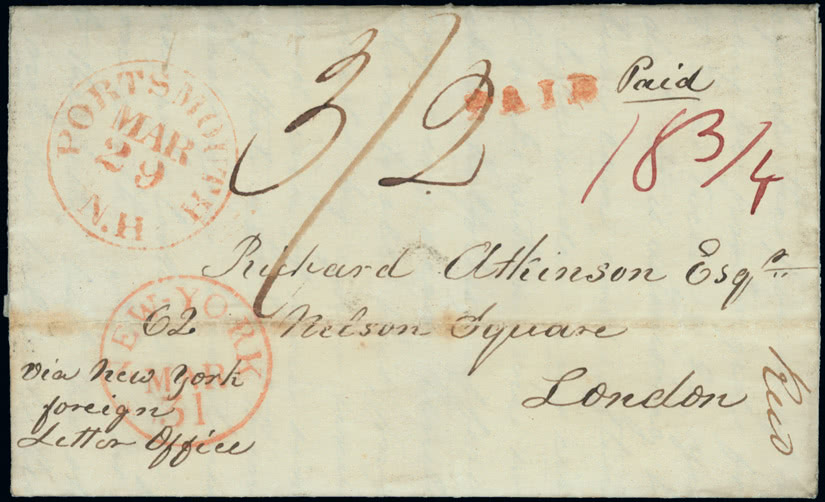 PORTSMOUTH
MAR
29
N.H
3/2
PAID
Paid
18 3/4
Richard Atkinson Esqr
62 Nelson Square
London
NEW-YORK
MAR
31
via New York
foreign
Letter Office